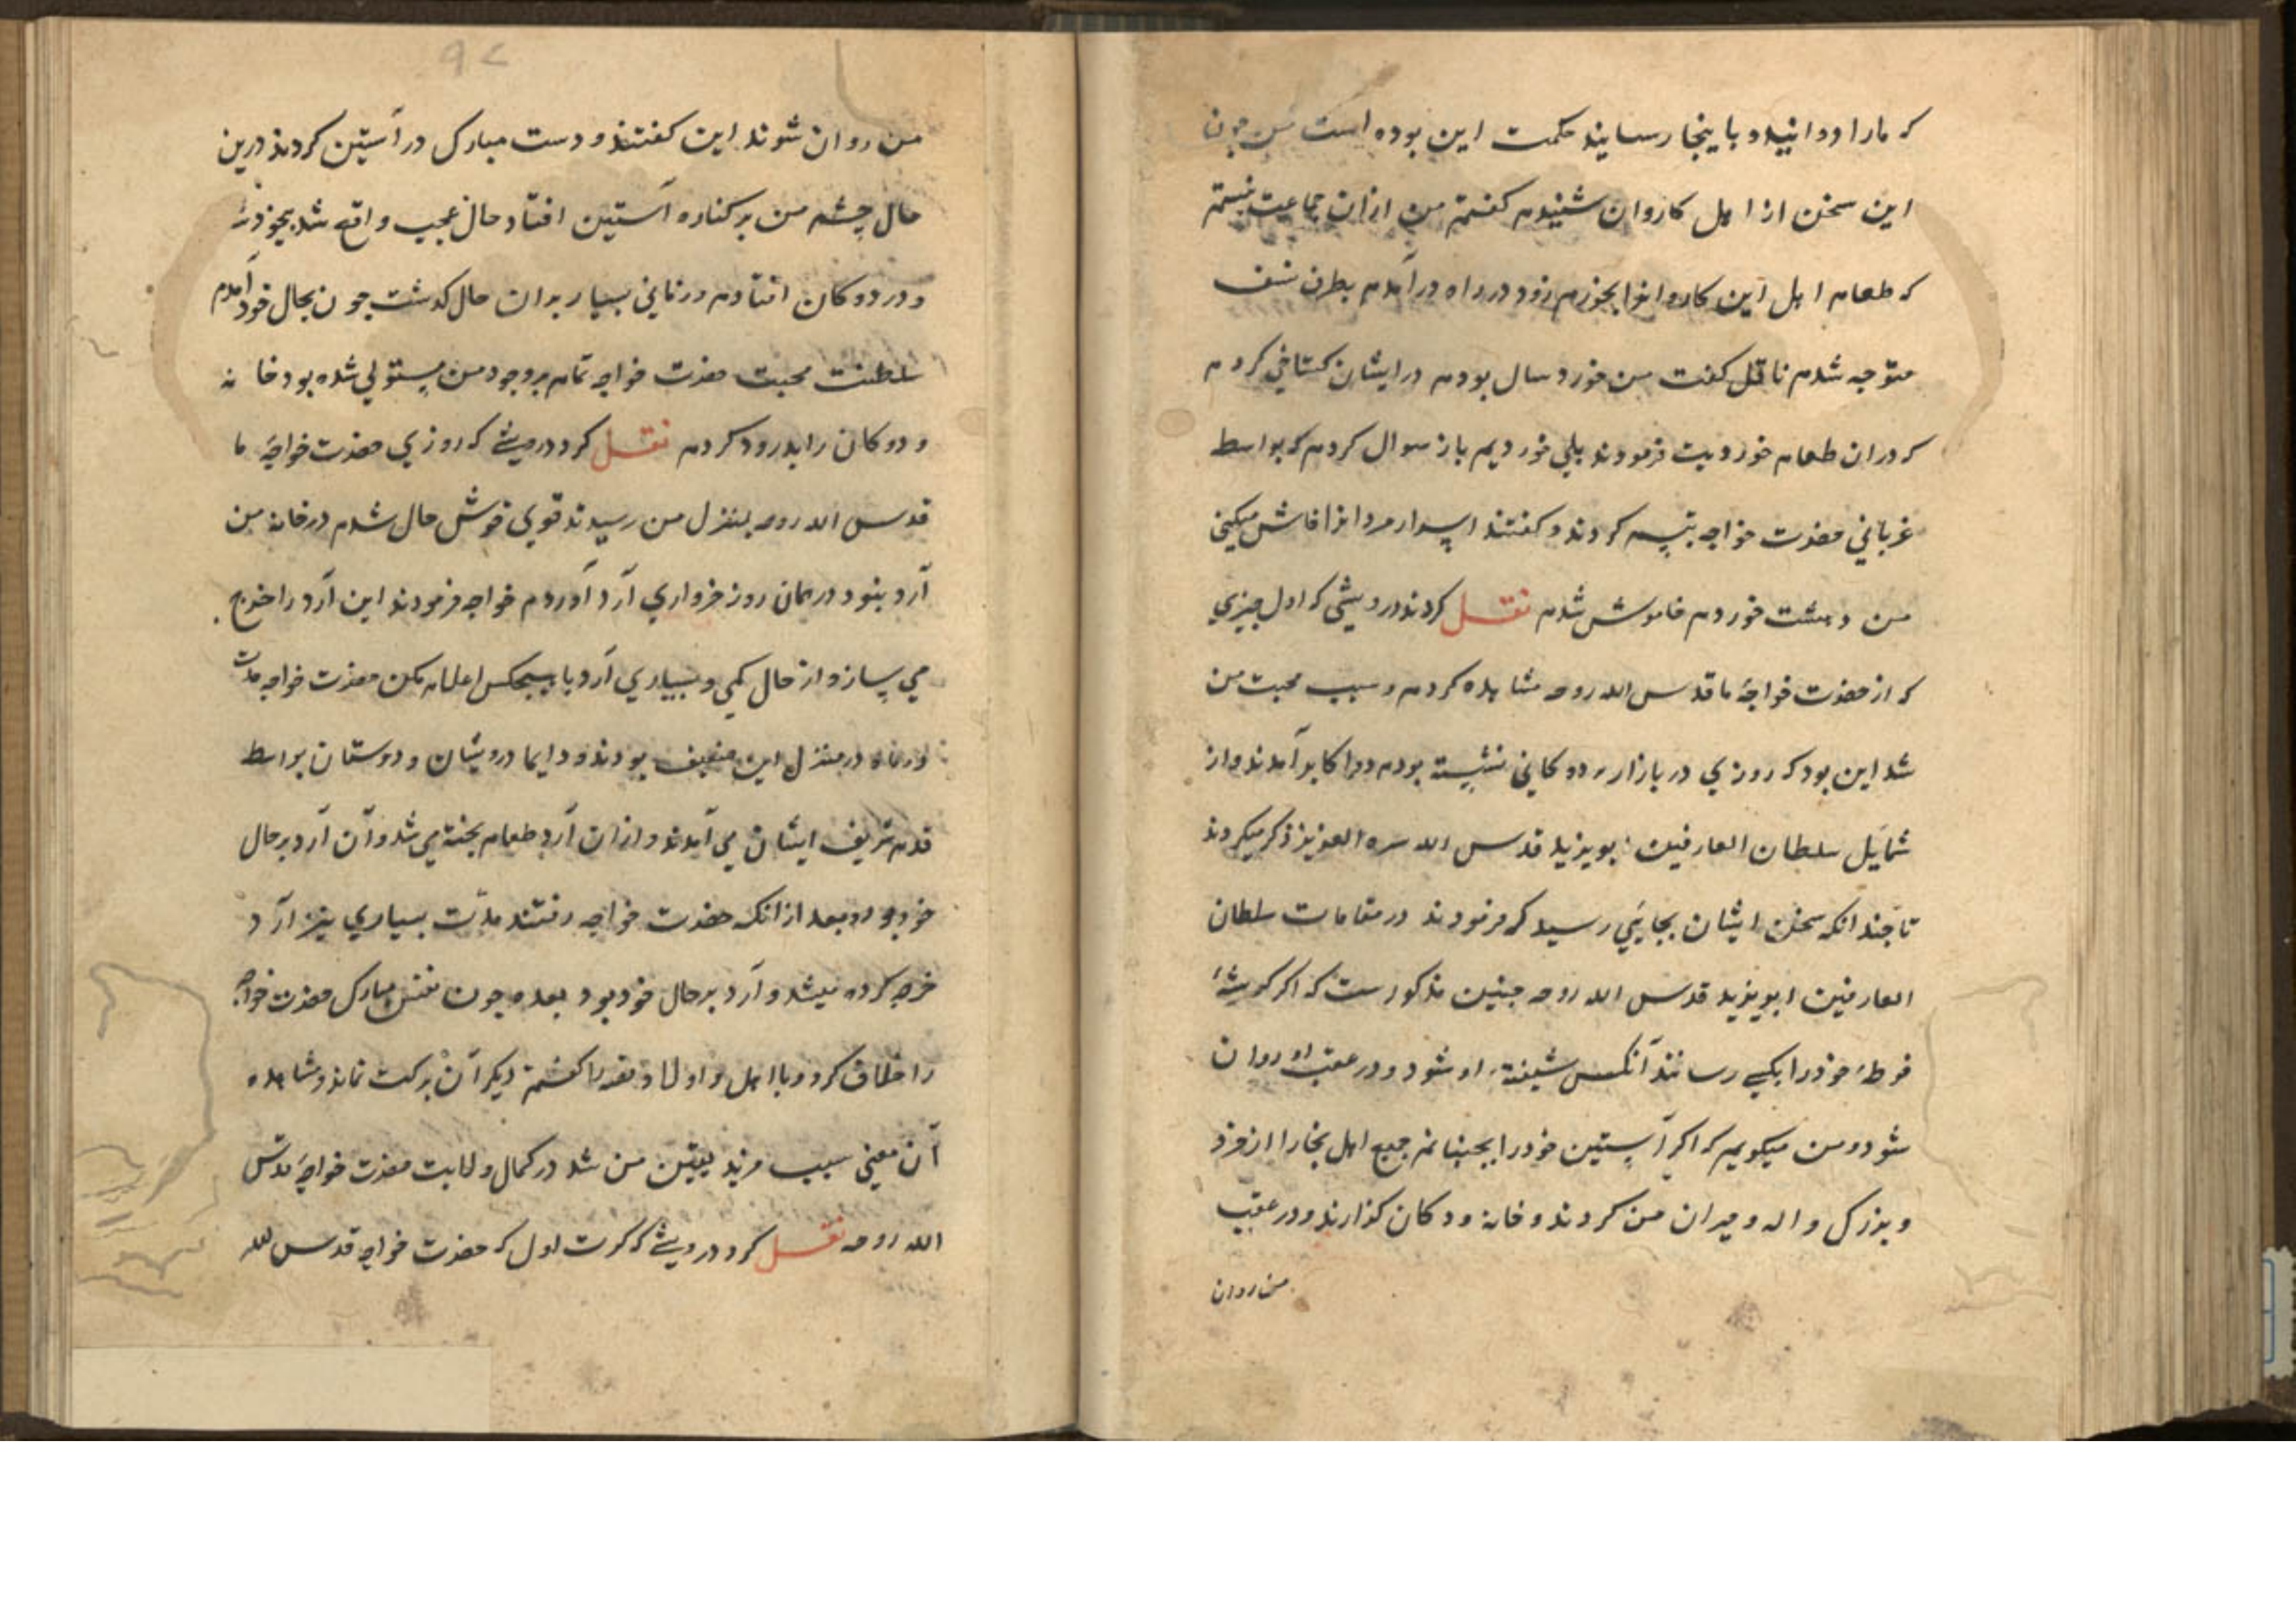 که مارا دوانید و باینجا رسانید حکمت این بوده است من چون
این سخن از اهل کاروان شنیدم کفتم من ازان جماعت نیستم
که طعام اهل این کاروانرا بخورم زود در راه درآمدم بطرف نسف
متوجه شدم ناقل کفت من خورد سال بودم در ایشان کستاخی کردم
که دران طعام خوردیت فرمودند بلی خوردیم باز سوال کردم که بواسطه
حضرت خواجه تبسم کردند و کفتند اسرار مردانرا فاش میکنی
من دهشت خوردم خاموش شدم نقل کردند درویشی که اول چیزی
که از حضرت خواجهٔ ما قدس الله روحه مشاهده کردم و سبب محبت من
شد این بود که روزی در بازار بر دوکانی نشسته بودم در آمدند و از
شمایل سلطان العارفین ابویزید قدس الله سره العزیز ذکر میکردند
تا چند انکه سخن ایشان بجایی رسید که فرمودند در مقامات سلطان
العارفین ابویزید قدس الله روحه چنین مذکورست که اکر کوشهٔ
فوطهٔ خودرا بکسی رسانند آنکس شیفتهٔ او شود و در عقب او روان
شود و من میکویم که اکر آستین خودرا بجنبانم جمیع اهل بخارا از خرد
و بزرک واله و حیران من کردند و خانه و دکان کذارند و در عقب
من روان
۹۲
من روان شوند این کفتند و دست مبارک در آستین کردند درین
حال چشم من بر کناره آستین افتاد حال عجیب واقع شد بیخود
و در دوکان افتادم و زمانی بسیار بران حال کذشت چون بحال خود آمدم
سلطنت محبت حضرت خواجه تمام بر وجود من مستولی شده بود خانه
و دوکان را بدرود کردم نقل کرد درویشے که روزی حضرت خواجهٔ ما
قدس الله روحه بمنزل من رسیدند قوی خوش حال شدم در خانه من
آرد نبود در همان روز خرواری آرد آوردم خواجه فرمودند این آرد را خرج
می ساز و از حال کمی و بسیاری آرد با هیچکس اعلام مکن حضرت خواجه مدت
در منزل این ضعیف بودند و دایما درویشان و دوستان بواسطه
قدم شریف ایشان می آمدند و ازان آرد طعام پخته می شد و آن آرد بر حال
خود بود و بعد ازانکه حضرت خواجه رفتند مدّت بسیاری نیز ازآرد
خرج کرده میشد و آرد بر حال خود بود بعده چون نفس مبارک حضرت خواجه
را خلاف کردم و با اهل و اولاد قصه را کفتم دیکر آن برکت نماند و مشاهده
آن معنی سبب مزید یقین من شد در کمال ولایت حضرت خواجهٔ قدس
الله روحه نقل کرد درویشے که کرت اول که حضرت خواجه قدس الله